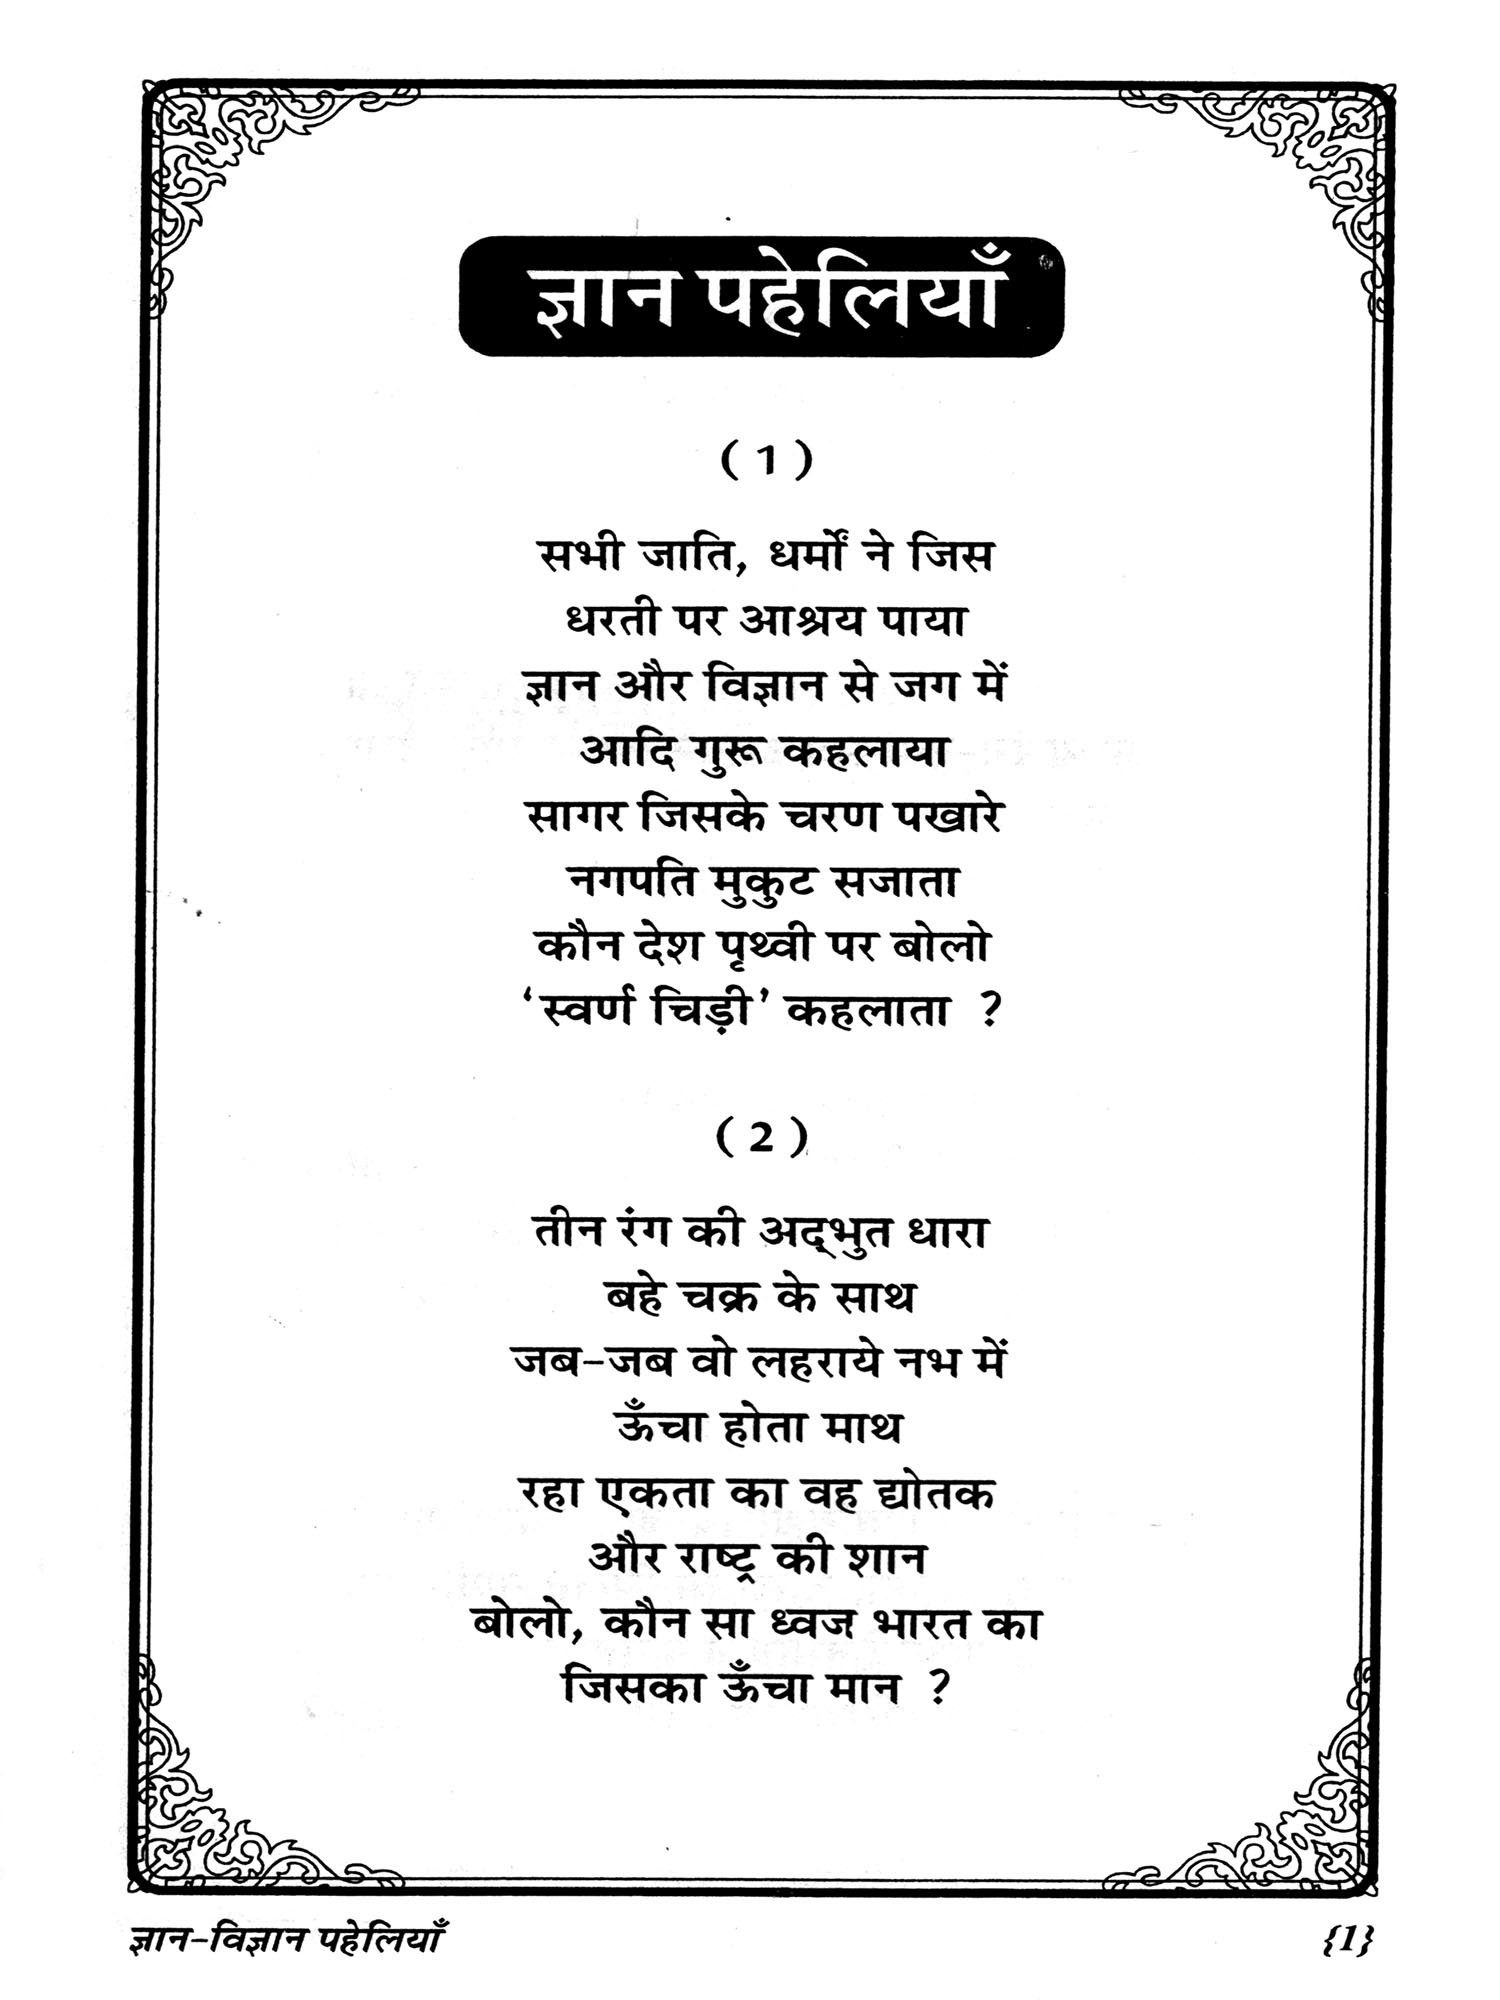 ज्ञान पहेलियाँ
( 1 )
सभी जाति, धर्मों ने जिस
धरती पर आश्रय पाया
ज्ञान और विज्ञान से जग में
आदि गुरू कहलाया
सागर जिसके चरण पखारे
नगपति मुकुट सजाता
कौन देश पृथ्वी पर बोलो
‘स्वर्ण चिड़ी’ कहलाता ?
( 2 )
तीन रंग की अद्‌भुत धारा
बहे चक्र के साथ
जब-जब वो लहराये नभ में
ऊँचा होता माथ
रहा एकता का वह द्योतक
और राष्ट्र की शान
बोलो, कौन सा ध्वज भारत का
जिसका ऊँचा मान ?
ज्ञान-विज्ञान पहेलियाँ {1}